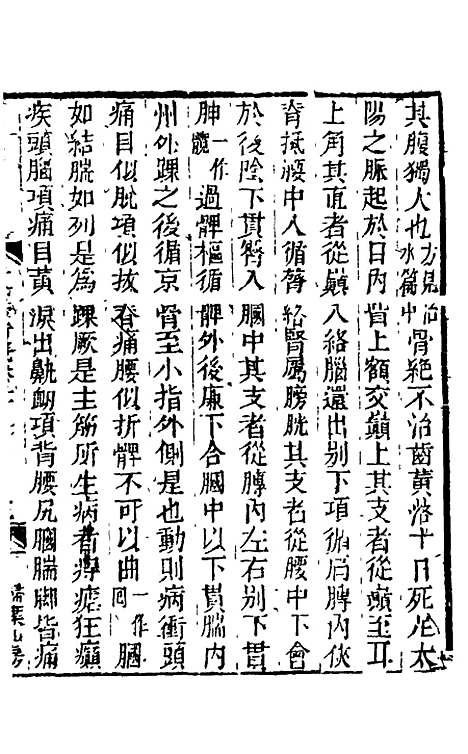 其腹獨大也方見治水篇中骨絕不治齒黃落十日死足太
陽之脈起於目內眥上額交巔上其支者從巔至耳
上角其直者從巔入絡腦還出別下項循肩膊內俠
脊抵腰中入循膂絡腎屬膀胱其支者從腰中下會
於後陰下貫臀入膕中其支者從膊內左右別下貫
胂一作髖過髀樞循髀外後廉下合膕中以下貫腨內
出外踝之後循京骨至小指外側是也動則病衝頭
痛目似脫項似拔脊痛腰似折髀不可以曲一作回膕
如結腨如列是為踝厥是主筋所生病者痔瘧狂癲
疾頭腦項痛目黃淚出鼽衄項背腰尻膕腨腳皆痛
掃葉山房